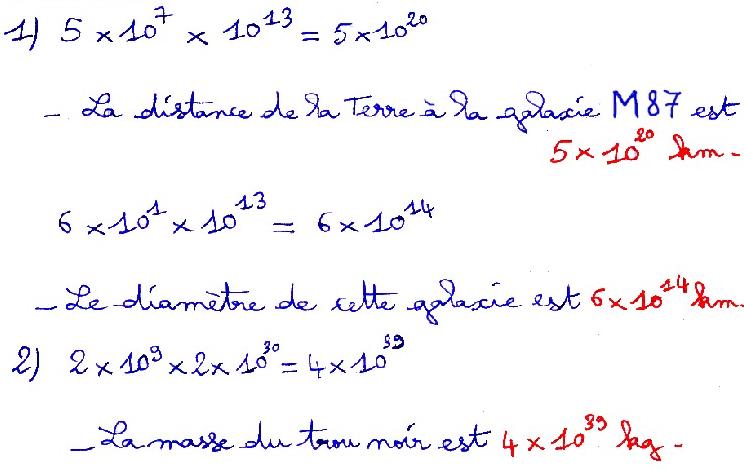 1) 5 × 10⁷ × 10¹³ = 5 × 10²⁰
- La distance de la Terre à la galaxie M87 est
5 × 10²⁰ km.
6 × 10¹ × 10¹³ = 6 × 10¹⁴
- Le diamètre de cette galaxie est 6 × 10¹⁴ km.
2) 2 × 10⁹ × 2 × 10³⁰ = 4 × 10³⁹
- La masse du trou noir est 4 × 10³⁹ kg.